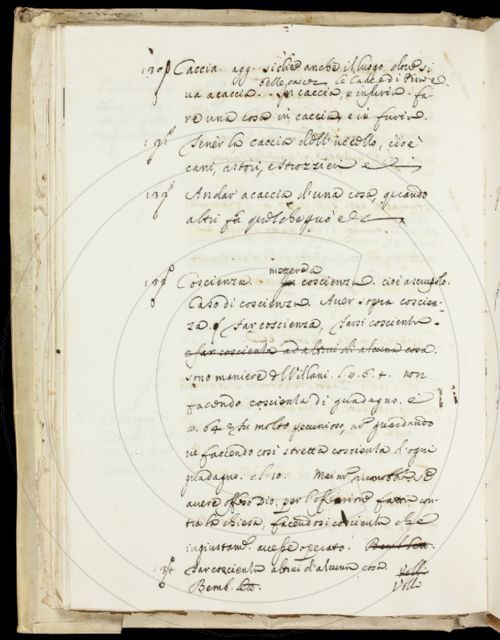 Caccia. agg. si dice anche il luogo, dove si
delle caccie le Cacce di Pirro e
va a caccia. In caccia, e in furia. fa-
re una cosa in caccia, e in furia.
Tener la caccia dell'uccello, cioè
cani, astori, e strozzieri e
Andar a caccia d'una cosa, quando
altri fa quel che può e
mettere a
Coscienza. coscienza. cioè a scrupolo.
Caso di coscienza. Aver sopra coscien-
za. far coscienza, farsi coscienta.
e far coscienta ad altrui di alcuna cosa
sono maniere di Villani. l. 9. 6. 4. non
facendo coscienta di guadagno. e
64 fu molto pecunioso, guardando
ne faciendo così stretta coscienta d'ogni
guadagno. el. 10. riconobbe
avere offeso Dio, per l'offensione fatta con-
tra la chiesa, facendosi coscienta che
ingiustam. avesse operato. Bemb. lett.
far coscienta altrui d'alcuna cosa Volli
Bemb. lett. Volli